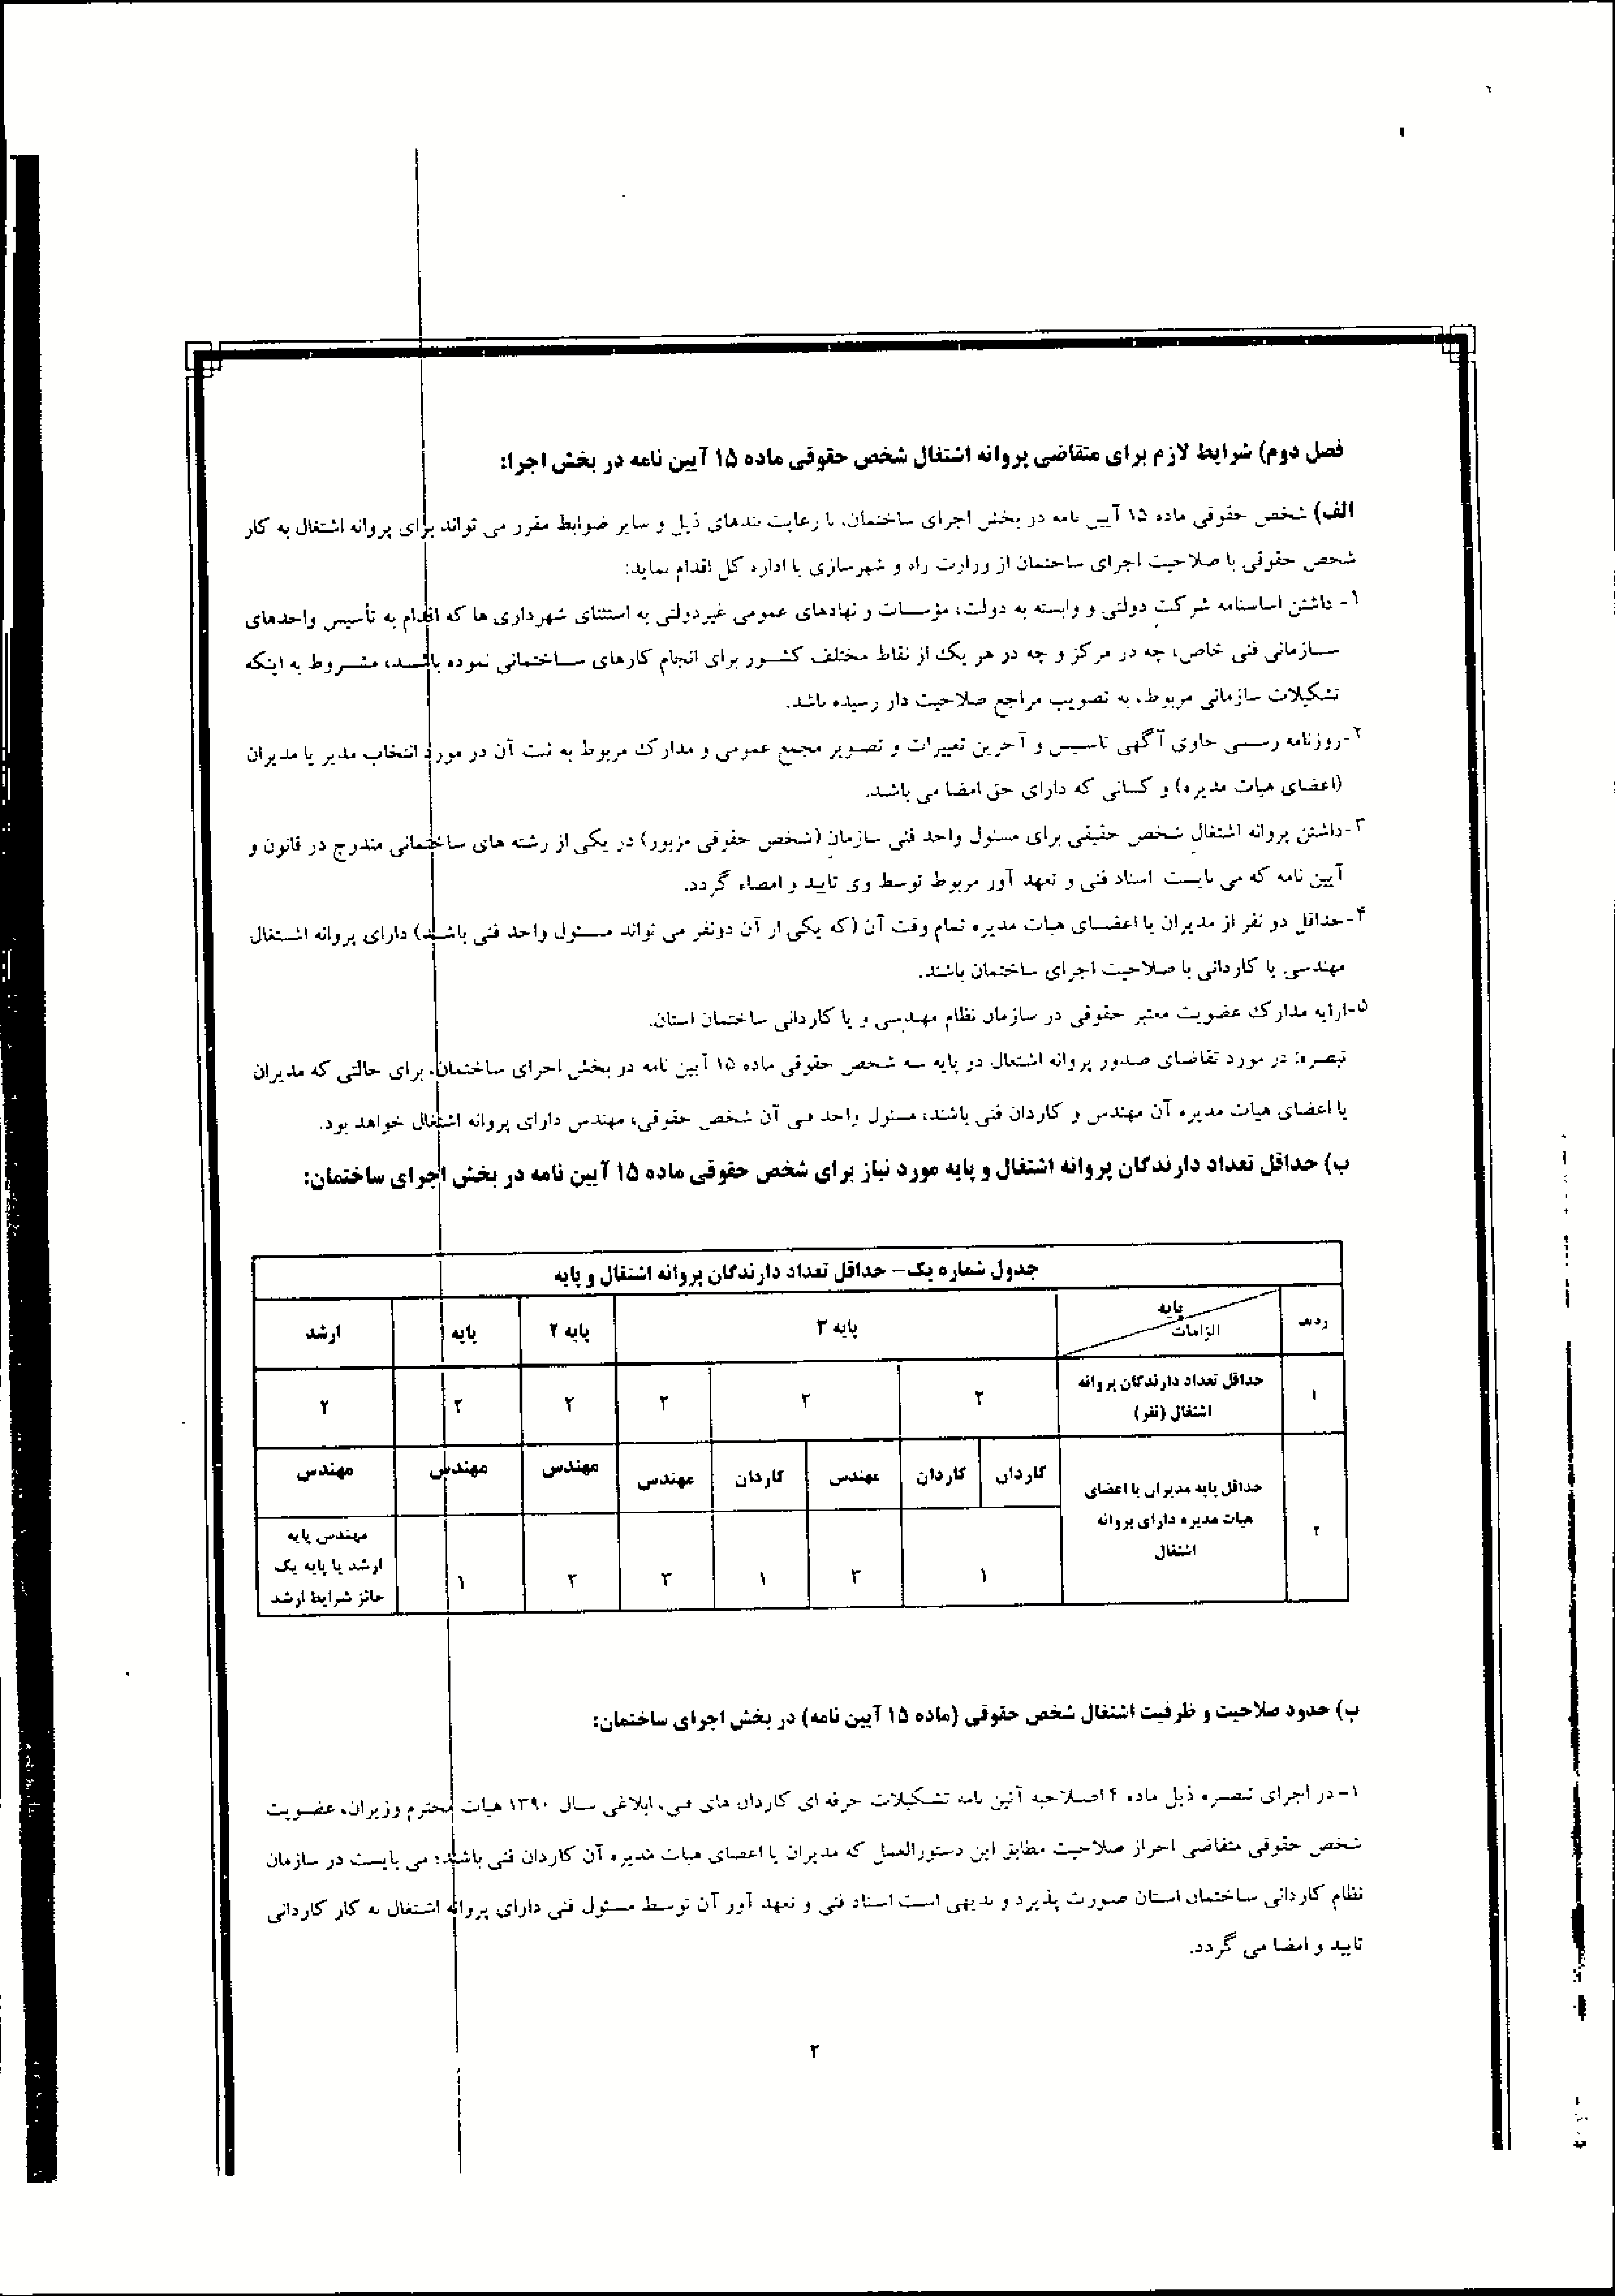 فصل دوم) شرایط لازم برای متقاضی پروانه اشتغال شخص حقوقی ماده ۱۵ آیین نامه در بخش اجرا:
الف) شخص حقوقی ماده ۱۵ آیین نامه در بخش اجرای ساختمان، با رعایت بندهای ذیل و سایر ضوابط مقرر می تواند برای پروانه اشتغال به کار
شخص حقوقی با صلاحیت اجرای ساختمان از وزارت راه و شهرسازی یا اداره کل اقدام نماید:
۱- داشتن اساسنامه شرکت دولتی و وابسته به دولت، مؤسسات و نهادهای عمومی غیردولتی به استثنای شهرداری ها که اقدام به تأسیس واحدهای
سازمانی فنی خاص، چه در مرکز و چه در هر یک از نقاط مختلف کشور برای انجام کارهای ساختمانی نموده باشند، مشروط به اینکه
تشکیلات سازمانی مربوط، به تصویب مراجع صلاحیت دار رسیده باشد.
۲-روزنامه رسمی حاوی آگهی تاسیس و آخرین تغییرات و تصویر مجمع عمومی و مدارک مربوط به ثبت آن در مورد انتخاب مدیر یا مدیران
(اعضای هیات مدیره) و کسانی که دارای حق امضا می باشد.
۳-داشتن پروانه اشتغال شخص حقیقی برای مسئول واحد فنی سازمان (شخص حقوقی مزبور) در یکی از رشته های ساختمانی مندرج در قانون و
آیین نامه که می بایست اسناد فنی و تعهد آور مربوط توسط وی تایید و امضاء گردد.
۴-حداقل دو نفر از مدیران یا اعضای هیات مدیره تمام وقت آن (که یکی از آن دونفر می تواند مسئول واحد فنی باشد) دارای پروانه اشتغال
مهندسی یا کاردانی با صلاحیت اجرای ساختمان باشند.
۵-ارایه مدارک عضویت معتبر حقوقی در سازمان نظام مهندسی و یا کاردانی ساختمان استان.
تبصره: در مورد تقاضای صدور پروانه اشتغال در پایه سه شخص حقوقی ماده ۱۵ آیین نامه در بخش اجرای ساختمان، برای حالتی که مدیران
یا اعضای هیات مدیره آن مهندس و کاردان فنی باشند، مسئول واحد فنی آن شخص حقوقی، مهندس دارای پروانه اشتغال خواهد بود.
ب) حداقل تعداد دارندگان پروانه اشتغال و پایه مورد نیاز برای شخص حقوقی ماده ۱۵ آیین نامه در بخش اجرای ساختمان:
جدول شماره یک– حداقل تعداد دارندگان پروانه اشتغال و پایه
ردیف پایه الزامات پایه ۳ پایه ۲ پایه ۱ ارشد
۱ حداقل تعداد دارندگان پروانه اشتغال (نفر) ۲ ۲ ۲ ۲ ۲ ۲
۲ حداقل پایه مدیران یا اعضای هیات مدیره دارای پروانه اشتغال
کاردان کاردان مهندس کاردان مهندس مهندس مهندس مهندس
۱ ۳ ۱ ۳ ۲ ۱ مهندس پایه ارشد یا پایه یک حائز شرایط ارشد
پ) حدود صلاحیت و ظرفیت اشتغال شخص حقوقی (ماده ۱۵ آیین نامه) در بخش اجرای ساختمان:
۱- در اجرای تبصره ذیل ماده ۴ اصلاحیه آئین نامه تشکیلات حرفه ای کاردان های فنی، ابلاغی سال ۱۳۹۰ هیات محترم وزیران، عضویت
شخص حقوقی متقاضی احراز صلاحیت مطابق این دستورالعمل که مدیران یا اعضای هیات مدیره آن کاردان فنی باشند؛ می بایست در سازمان
نظام کاردانی ساختمان استان صورت پذیرد و بدیهی است اسناد فنی و تعهد آور آن توسط مسئول فنی دارای پروانه اشتغال به کار کاردانی
تایید و امضا می گردد.
۲